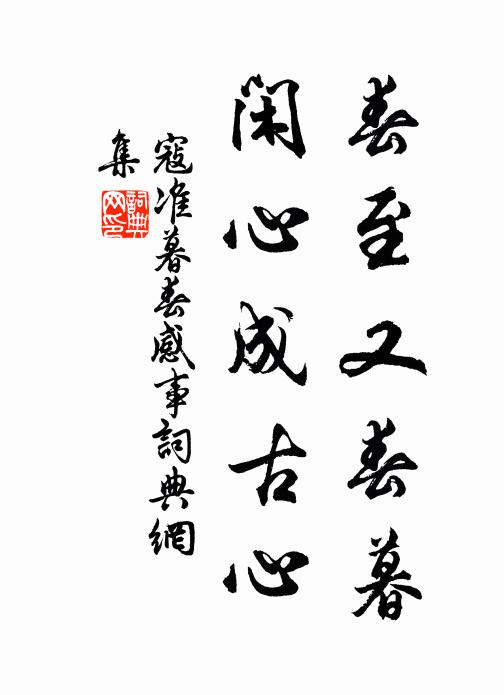 春至又春暮
閑心成古心
寇准暮春感事詞典網
集
詞典
网印